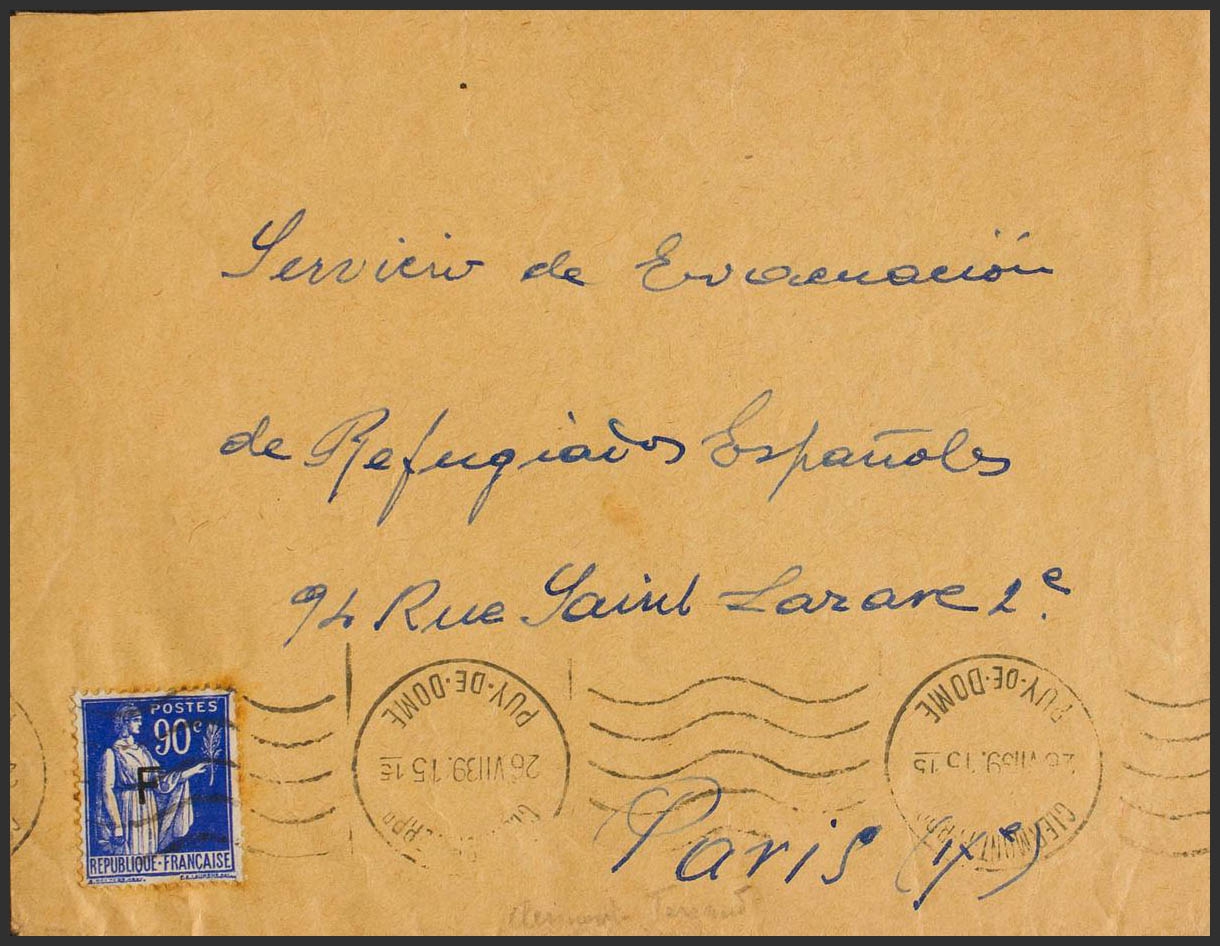 Servicio de Evacuación
de Refugiados Españoles
94 Rue Saint Lazare 2e.
POSTES
90c
F
REPUBLIQUE·FRANÇAISE
PUY-DE-DOME
26 VII39. 15 15
PUY-DE-DOME
26 VII39. 15 15
CLERMONT
Paris (IXe)
Clermont Ferrand